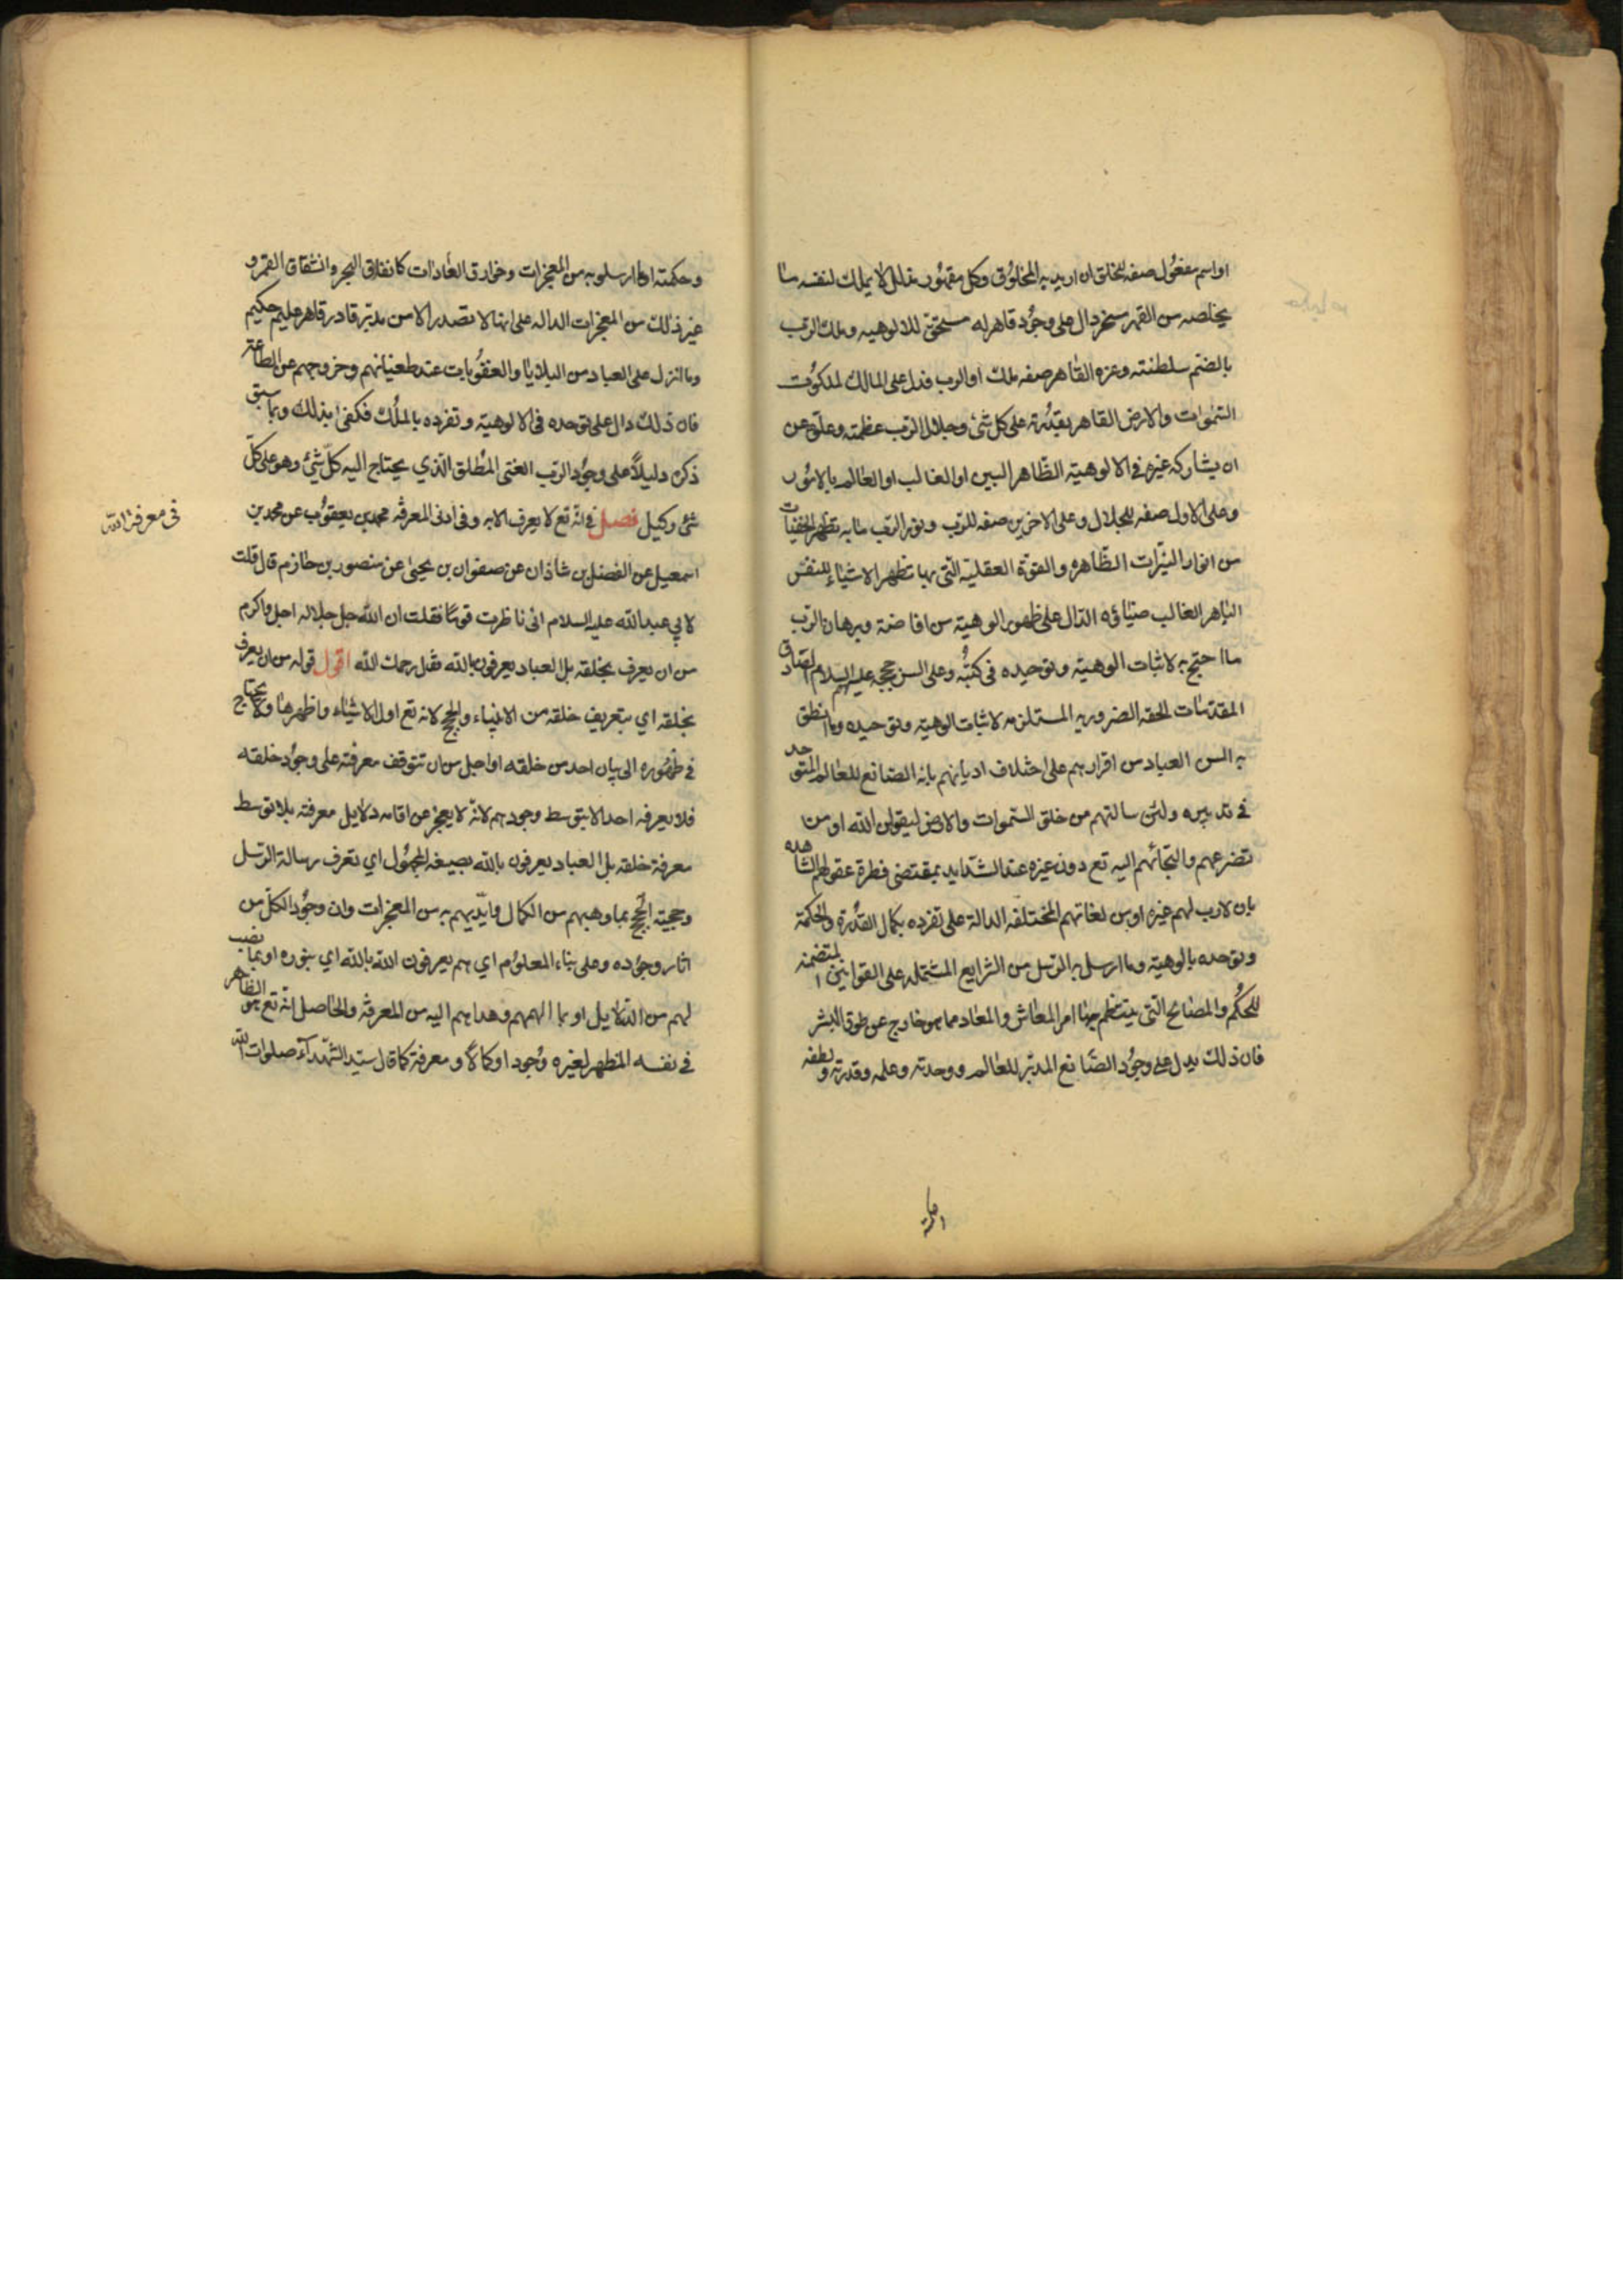 او اسم مفعول صفه للخلق ان اريد به المخلوق وكل مقهور مذلل لا يملك لنفسه ما
يخلصه من القهر مسخر دال على وجود قاهر له مستحق للالوهيه وملك الرب
بالضم سلطنته وعزه القاهر صفه ملك او الرب فدل على المالك لملكوت
السموات والارض القاهر بقدرته على كل شئ وجلال الرب عظمته وعلوه عن
ان يشاركه غيره في الالوهية الظاهر البين او الغالب او العالم بالامور
وعلى الاول صفه للجلال وعلى الاخرين صفه للرب ونور الرب ما به تظهر الخفيات
من انوار النيرات الظاهره والقوة العقلية التى بها تظهر الاشياء للنفس
الباهر الغالب ضياؤه الدال على ظهور الوهيته من افاضته وبرهان الرب
ما احتج به لاثبات الوهيته وتوحيده فى كتبه وعلى السن حججه عليهم السلام الصادق
المقدمات الحقه الضروريه المستلزمه لاثبات الوهيته وتوحيده وما انطق
به السن العباد من اقرارهم على اختلاف اديانهم بانه الصانع للعالم المتوحد
في تدبيره ولئن سالتهم من خلق السموات والارض ليقولن الله او من
تضرعهم والتجائهم اليه تع دون غيره عند الشدايد بمقتضى فطرة عقولهم الشاهده
بان لا رب لهم غيره او من لغاتهم المختلفه الدالة على تفرده بكمال القدرة والحكمة
وتوحده بالوهيته وما ارسل به الرسل من الشرايع المشتمله على القوانين المتضمنه
للحكم والمصالح التى ينتظم بها امر المعاش والمعاد مما هو خارج عن طوق البشر
فان ذلك يدل على وجود الصانع المدبر للعالم ووحدته وعلمه وقدرته ولطفه
وحكمته او ما ارسلوا به من المعجزات وخوارق العادات كانفلاق البحر وانشقاق القمر و
غير ذلك من المعجزات الداله على انها لا تصدر الا من مدبر قادر قاهر عليم حكيم
وما انزل على العباد من البلايا والعقوبات عند طغيانهم وخروجهم عن الطاعة
فان ذلك دال على توحده فى الالوهية وتفرده بالملك فكفى بذلك وبما سبق
ذكره دليلا على وجود الرب الغنى المطلق الذي يحتاج اليه كل شئ وهو على كل
شئ وكيل فصل في انه تع لا يعرف الا به وفى ادنى المعرفة محمد بن يعقوب عن محمد بن
فى معرفة الله
اسمعيل عن الفضل بن شاذان عن صفوان بن يحيى عن منصور بن حازم قال قلت
لابي عبد الله عليه السلام انى ناظرت قوما فقلت ان الله جل جلاله اجل واكرم
من ان يعرف بخلقه بل العباد يعرفون بالله فقال رحمك الله اقول قوله من ان يعرف
بخلقه اي بتعريف خلقه من الانبياء والحجج لانه تع اول الاشياء واظهرها ولا يحتاج
في ظهوره الى بيان احد من خلقه او اجل من ان تتوقف معرفته على وجود خلقه
فلا يعرفه احد الا بتوسط وجودهم لانه لا يعجز عن اقامه دلايل معرفته بلا توسط
معرفة خلقه بل العباد يعرفون بالله بصيغه المجهول اي تعرف رسالة الرسل
وحجية الحجج بما وهبهم من الكمال وايديهم به من المعجزات وان وجود الكل من
اثار وجوده وعلى بناء المعلوم اي هم يعرفون الله بالله اي بنوره او بما نصب
لهم من الدلايل او بما الهمهم وهداهم اليه من المعرفة والحاصل انه تع هو الظاهر
في نفسه المظهر لغيره وجودا وكمالا ومعرفة كما قال سيد الشهداء صلوات الله